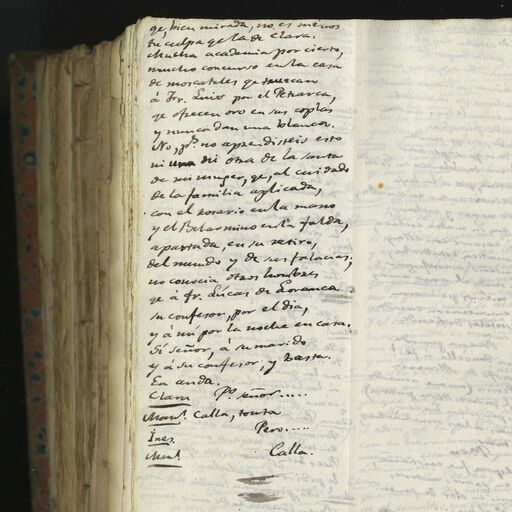 qe, bien mirada, no es menos
tu culpa qe la de Clara.
Mucha academia por cierto,
mucho concurso en la casa
de moscateles qe truecan
á Fr. Luis por el Petrarca,
qe ofrecen oro en sus coplas
y nunca dan una blanca.
No, pº no aprendisteis esto
ni una ni otra de la santa
de mi muger, qe, al cuidado
de la familia aplicada,
con el rosario en la mano
y el Belarmino en la falda,
apartada, en su retiro,
del mundo y de sus falacias,
no conocia otros hombres
qe á fr. Lúcas de Loranca
su confesor, por el dia,
y á mi por la noche en casa.
Sí señor, á su marido
y á su confesor, y basta.
Ea anda.
Clara Pº señor.....
Manl. Calla, tonta
Ines. Pero.....
Manl. Calla.